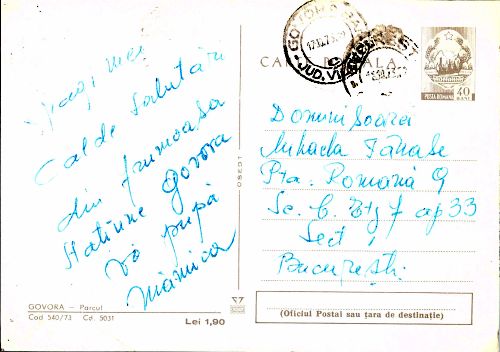 Dragii mei
Calde salutări
din frumoasa
stațiune Govora
Vă pupă
Mămica
GOVORA — Parcul
Cod 540/73 Cd. 5031
Lei 1,90
OSEDT
GOVORA
17.10.73
JUD. V
BUCUREȘTI
POSTA ROMANA
40
BANI
Domnișoara
Mihaela Tănase
Pța. Romană 9
Sc. C. Etg 7 ap 33
Sect 1
București
(Oficiul Postal sau țara de destinație)